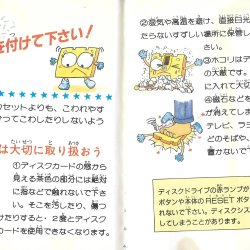 を付けて下さい!
セットよりも、こわれやす
けってこわしたりしないよう
は大切に取り扱おう
①ディスクカードの窓から
見える茶色の部分には絶対
に指などで触れないで下さ
い。そこを汚したり、傷つ
けたりすると・2度とディス
クカードを使用できなくなります。
②湿気や高温を避け、直接日光
たらないすずしい場所に保管し
さい。
③ホコリはデ
の大敵です。
に入れて大切
④磁石などを
が消えてしま
テレビ、ラジ
どのそばや、
置かないで下
ディスクドライブの赤ランプが
ボタンや本体のRESETボタ
れないで下さい。ディスクに
れることがあります。